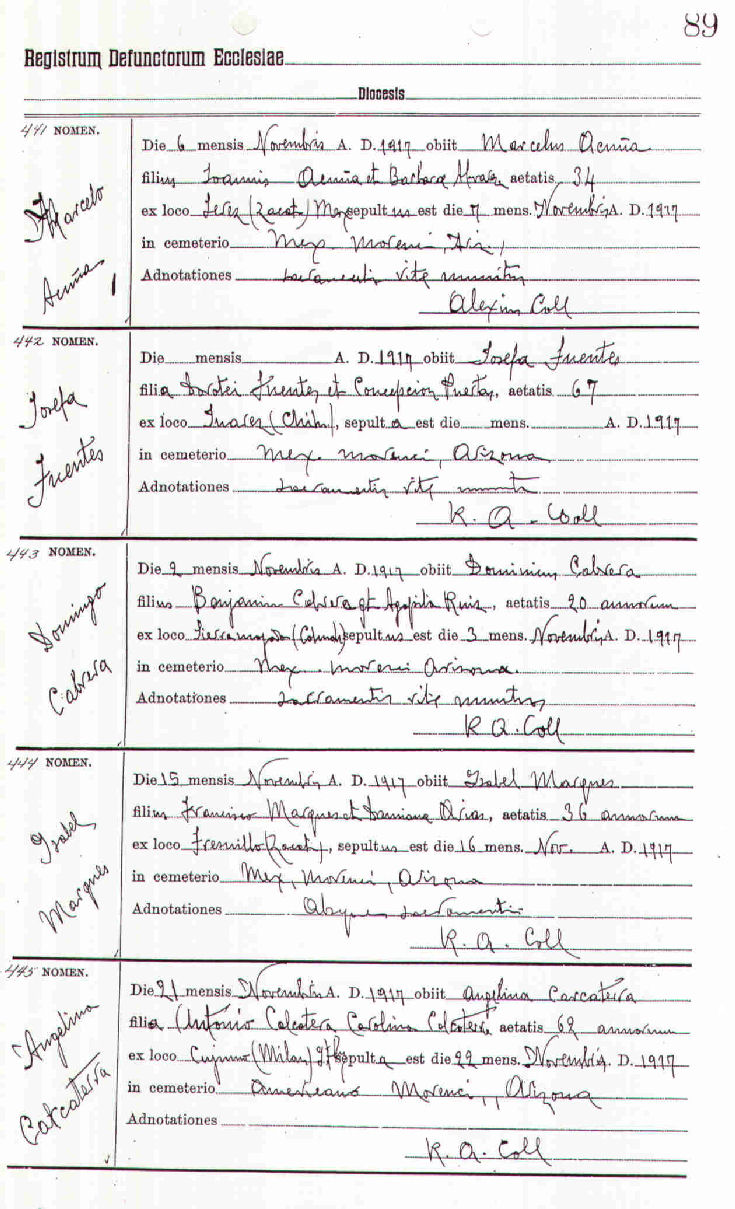 89
Registrum Defunctorum Ecclesiae
Diocesis
441 NOMEN.
Marcelo
Acuña
Die 6 mensis Novembris A. D. 1917 obiit Marcelus Acuña
filius Ioannis Acuña et Barbara aetatis 34
ex loco Jerez (Zacat) Mex sepultus est die 7 mens. Novembris A. D. 1917
in cemeterio Mex Morenci, Ariz,
Adnotationes sacramentis vitę munitus
Alexius Coll
442 NOMEN.
Josefa
Fuentes
Die mensis A. D. 1917 obiit Josefa Fuentes
filia Dorotei Fuentes et Concepcion, aetatis 67
ex loco Juarez (Chih), sepulta est die mens. A. D. 1917
in cemeterio Mex. Morenci, Arizona
Adnotationes Sacramentis vitę munita
R. A. Coll
443 NOMEN.
Domingo
Cabrera
Die 2 mensis Novembris A. D. 1917 obiit Dominicus Cabrera
filius Benjamin Cabrera et Agapita Ruis, aetatis 20 annorum
ex loco sepultus est die 3 mens. Novembris A. D. 1917
in cemeterio Mex. Morenci Arizona.
Adnotationes Sacramentis vitę munitus
R A. Coll
444 NOMEN.
Isabel
Marques
Die 15 mensis Novembris A. D. 1917 obiit Isabel Marques
filius Francisco Marques et Damiana Arias, aetatis 36 annorum
ex loco Fresnillo (Zacat), sepultus est die 16 mens. Nov. A. D. 1917
in cemeterio Mex, Morenci, Arizona
Adnotationes Absque sacramentis
R. A. Coll
445 NOMEN.
Angelina
Carcaterra
Die 21 mensis Novembris A. D. 1917 obiit Angelina Carcaterra
filia (Antonio Calcatera Carolina aetatis 62 annorum
ex loco (Milan) sepulta est die 22 mens. Novembris A. D. 1917
in cemeterio Americano Morenci, Arizona
Adnotationes
R. A. Coll